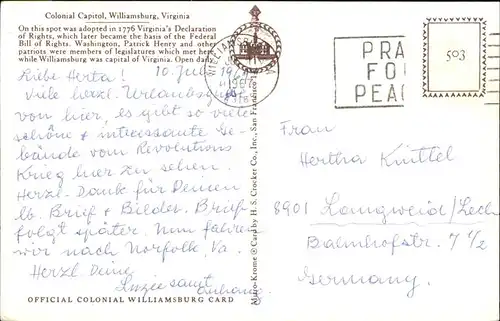 Colonial Capitol, Williamsburg, Virginia
On this spot was adopted in 1776 Virginia's Declaration
of Rights, which later became the basis of the Federal
Bill of Rights. Washington, Patrick Henry and other
patriots were members of legislatures which met here
while Williamsburg was capital of Virginia. Open daily.
Liebe Herta! 10. Juli
Viele herzl. Urlaubsgrüße
von hier, es gibt so viele
schöne & interessante Ge-
bäude vom Revolutions
Krieg hier zu sehen.
Herzl. Dank für Deinen
lb. Brief & Bilder. Brief
folgt später. Nun fahren
wir nach Norfolk, Va.
Herzl Deine
samt
Anhang.
OFFICIAL COLONIAL WILLIAMSBURG CARD
Mirro-Krome ® Card by H. S. Crocker Co., Inc., San Francisco 1
PRA
FO
PEAC
503
Frau
Hertha Knittel
8901 Langweid/Lech
Bahnhofstr. 7 1/2
Germany.